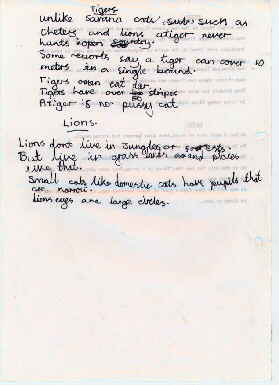 Tigers
unlike savana cats, such as
cheters and lions atiger never
hunts inopen country.
Some records say a tiger can cover 10
meters in a single bound.
Tigers even eat
Tigers have over stripes
A tiger is no pussy cat.
Lions.
Lions don't live in jungles or forests.
But live in grass lands and places
like that.
Small cats like domestic cats have pupils that
are narrow.
lions eyes are large circles.